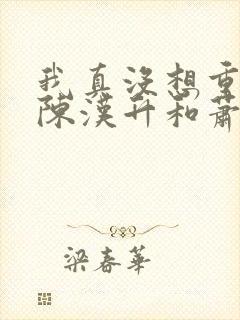 我真没想重
陳漢升和蕭
梁春華